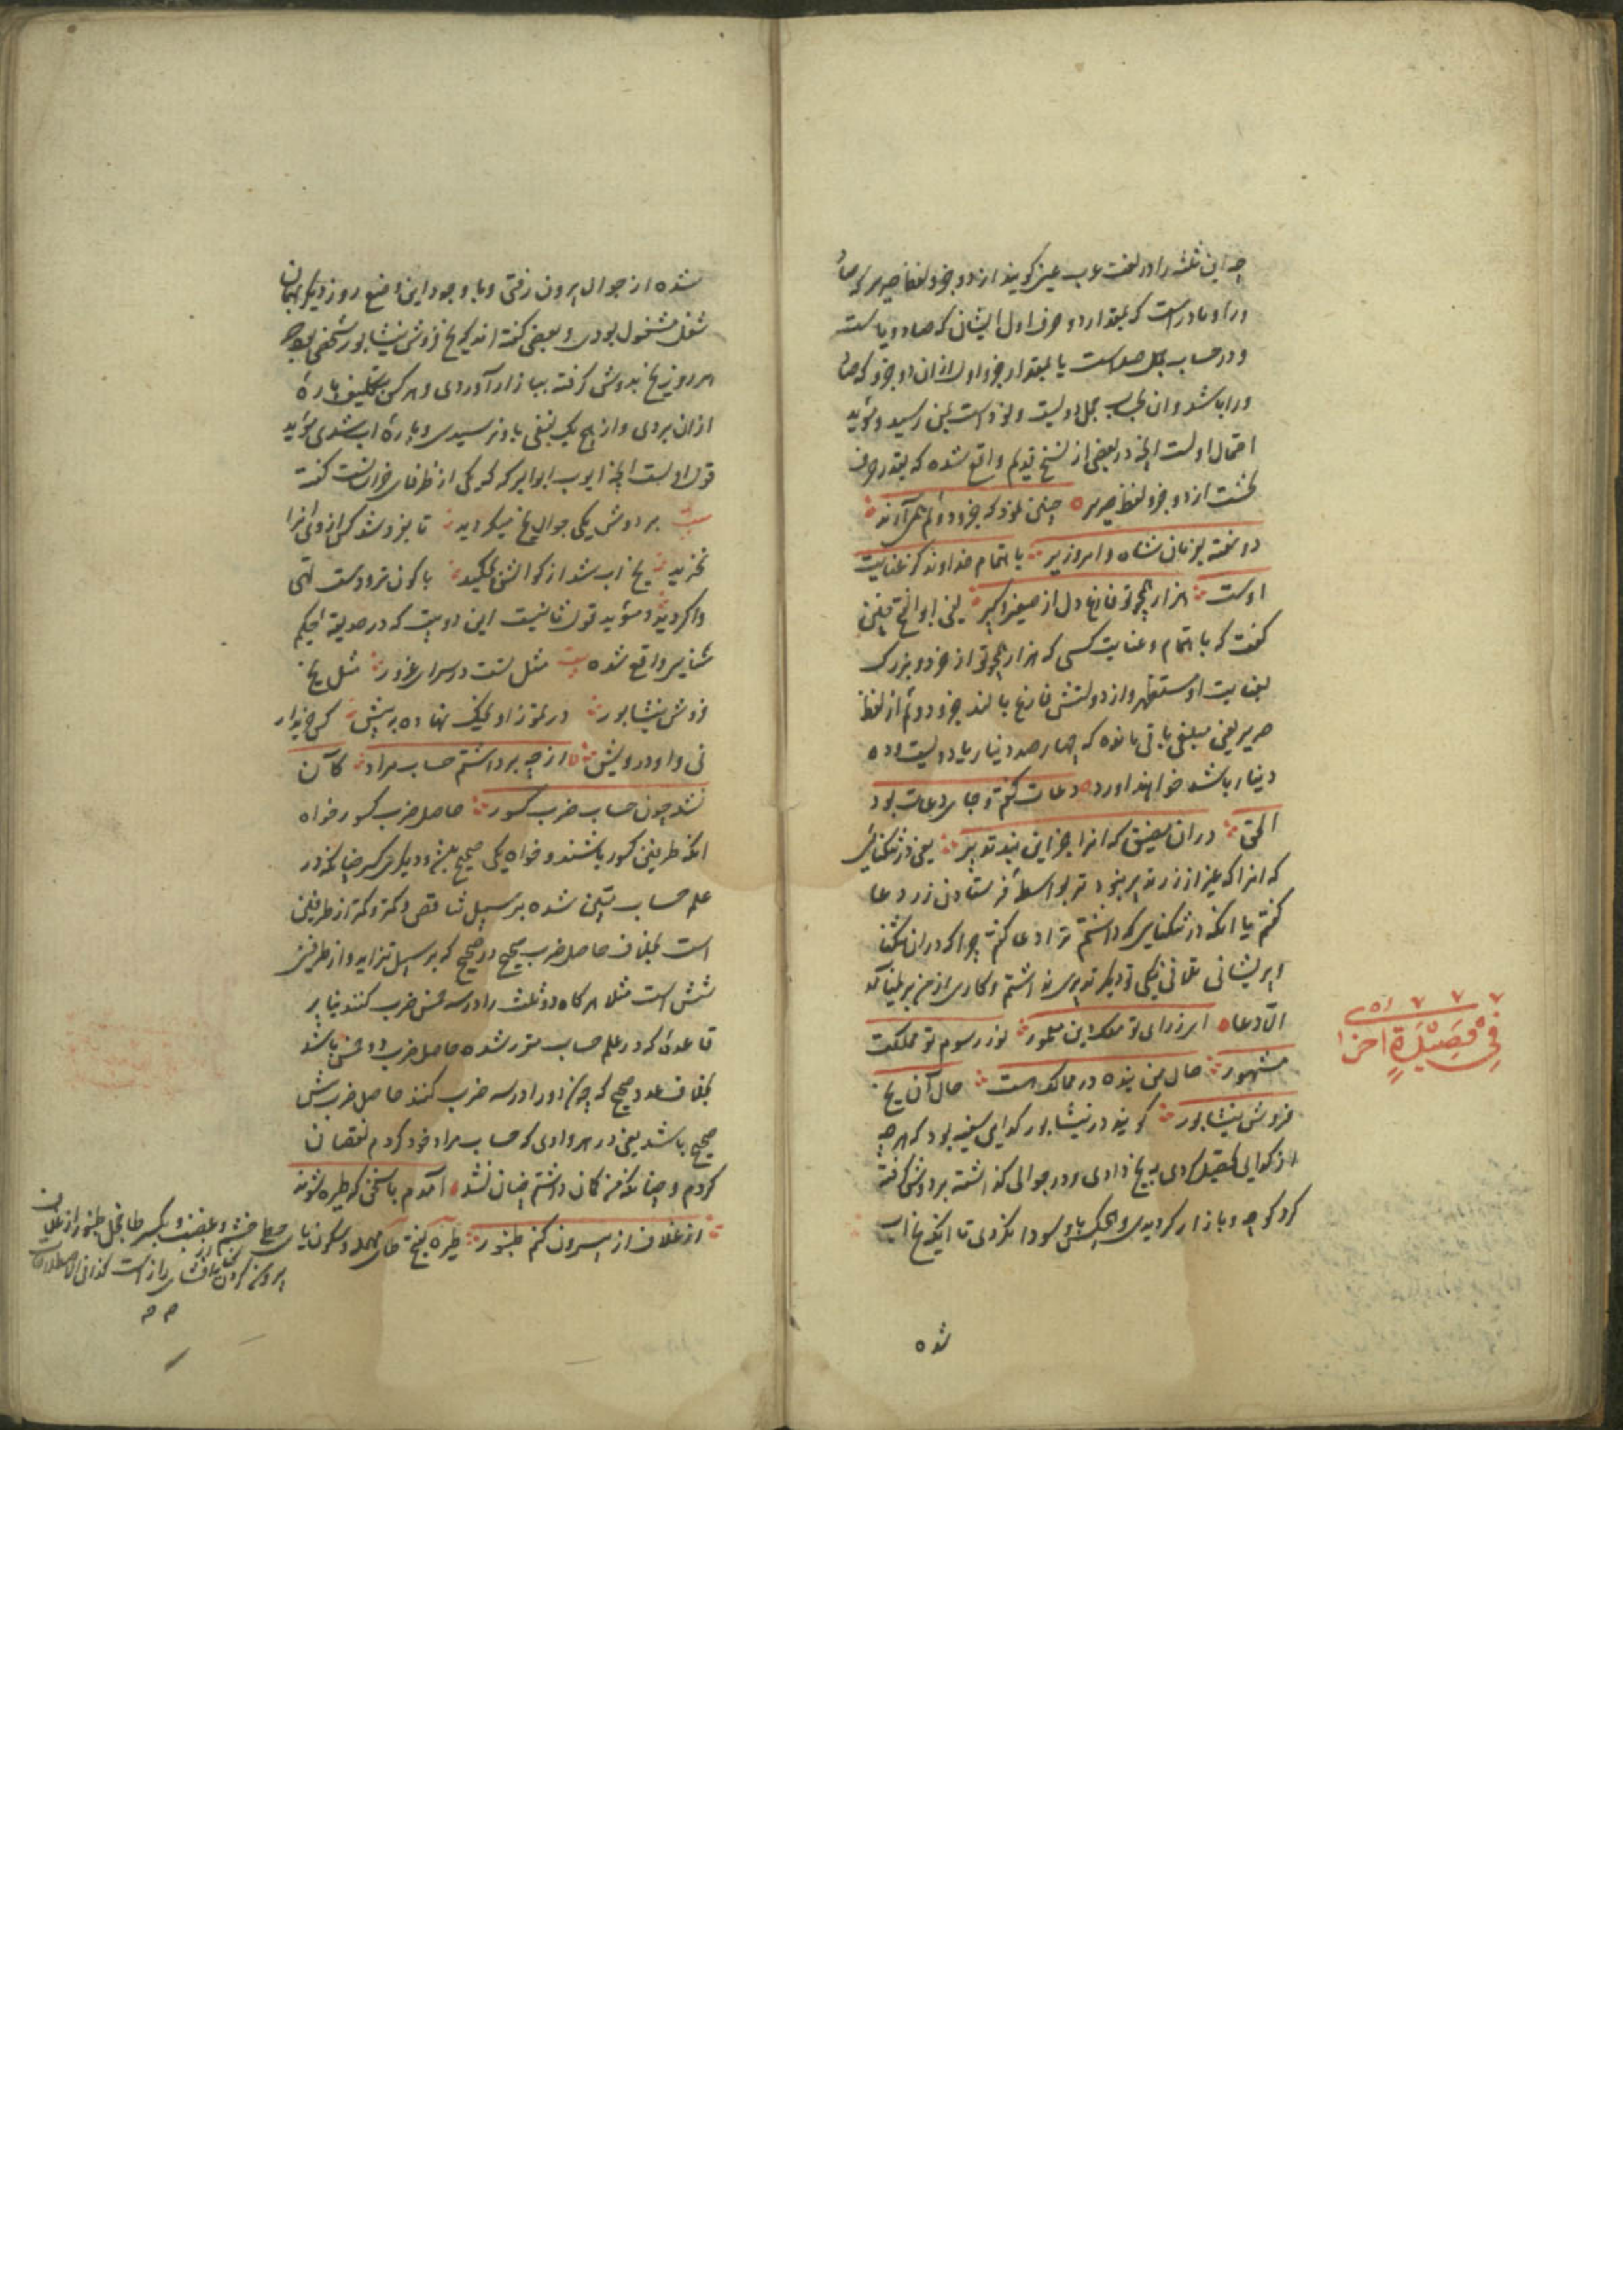 چه این ثلثه را در لغت عرب عین گویند از دو جزو لفظ صریر که صا
و را و یا در است که بمقدار دو حرف اول ایشان که صاد و یاست
و در حساب جمل صد است یا بمقدار جزو اول از ان دو جزو که صا
و را باشد و ان بحساب جمل دویست و نود است بمن رسید و مؤید
احتمال اولست انچه در بعضی از نسخ قدیم واقع شده که بقدر حرف
نخست از دو جزو لفظ صریر چنین نمود که جزو دوئم همی آرند
دوخته بو زبان شاه و امروز یر با اهتمام خداوند کز عنایت
اوست هزار همچو تو فارغ دل از صغیر و کبیر یعنی ابو الفتح چنین
گفت که با اهتمام و عنایت کسی که هزار همچو تو از خرد و بزرگ
بعنایت او مستظهر و از دولتش فارغ بالند جزو دوئم از لفظ
صریر یعنی مبلغی باقی مانده که چهار صد دینار یا دویست و ده
دینار باشد خواهند اورد دعات گفتم و جای دعات بود
الحق در ان مضیق که انرا جز این نبد تدبیر یعنی در تنگنائی
که انرا که غیر از زر تدبیر نبود تر بواسطهٔ فرستادن زر دعا
گفتم یا انکه در تنگنایی که داشتم ترا دعا گفتم چرا که در ان تنگنا
و پریشانی تلافی نیکی تو دیگر تدبیری نداشتم و کاری از من بر نمی‌آمد
الا دعا ای ز رای تو ملک و دین معمور نور رسوم تو مملکت
مشهور حال من بنده در ممالک هست حال آن یخ
فروش نیشابور گویند در نیشابور گدایی سفیه بود که هر چه
از گدایی تحصیل کردی به یخ دادی و در جوالی گذاشته بر دوش گرفته
گرد کوچه و بازار گردیدی و هیچکس باوی سودا نکردی تا اینکه یخ اب
شده
فی فضیلة اخرا
شده از جوال بیرون رفتی و با وجود این وضع روز دیگر بهمان
شغل مشغول بودی و بعضی گفته اند که یخ فروش نیشابور شخصی بود که
هر روز یخ بدوش گرفته ببازار آوردی و هر کس بتکلیف پارهٔ
از ان بردی و از هیچ یک نفعی باو نرسیدی و پارهٔ اب شدی مؤید
قول اولست انچه ایوب ابوالبرکه که یکی از ظرفای خراسانست گفته
بیت بر دوش یکی جوال یخ میگردید تا بفروشد کس از وی انرا
نخرید یخ اب شد از کوا لش چکید با کون تر و دست تهی
واگردید و مؤید قول ثانیست این دو بیت که در حدیقه الحکیم
سنایی واقع شده بیت مثل تست در سرای غرور مثل یخ
فروش نیشابور در تموز او یخک نهاده به پیش کس خریدار
نی و او درویش از چه برداشتم حساب مراد کان
نشد چون حساب ضرب کسور حاصل ضرب کسور خواه
انکه طرفین کسور باشند و خواه یکی صحیح بود و دیگری کسر چنانکه در
علم حساب مبین شده بر سبیل تناقص و کمتر از طرفین
است بخلاف حاصل ضرب صحیح در صحیح که بر سبیل تزاید و از طرفین
شش است مثلا هر گاه دو ثلث را در سه خمس ضرب کنند بنا بر
قاعدهٔ که در علم حساب مقرر شده حاصل ضرب دو خمس باشد
بخلاف عدد صحیح که چون دو را در سه ضرب کنند حاصل ضرب شش
صحیح باشد یعنی در هر وادی که حساب مراد خود کردم نقصان
کردم و چنانکه من گمان داشتم چنان نشد آمدم با سخن که طیره شوند
از غلاف از بیرون کنم طنبور طیره بفتح طای مهمله و سکون یای
بمعنی خشم و غضب و بکسر طا خجل طنبور از غلاف
بیرون کردن افشای راز است کذا فی الاصطلاحات